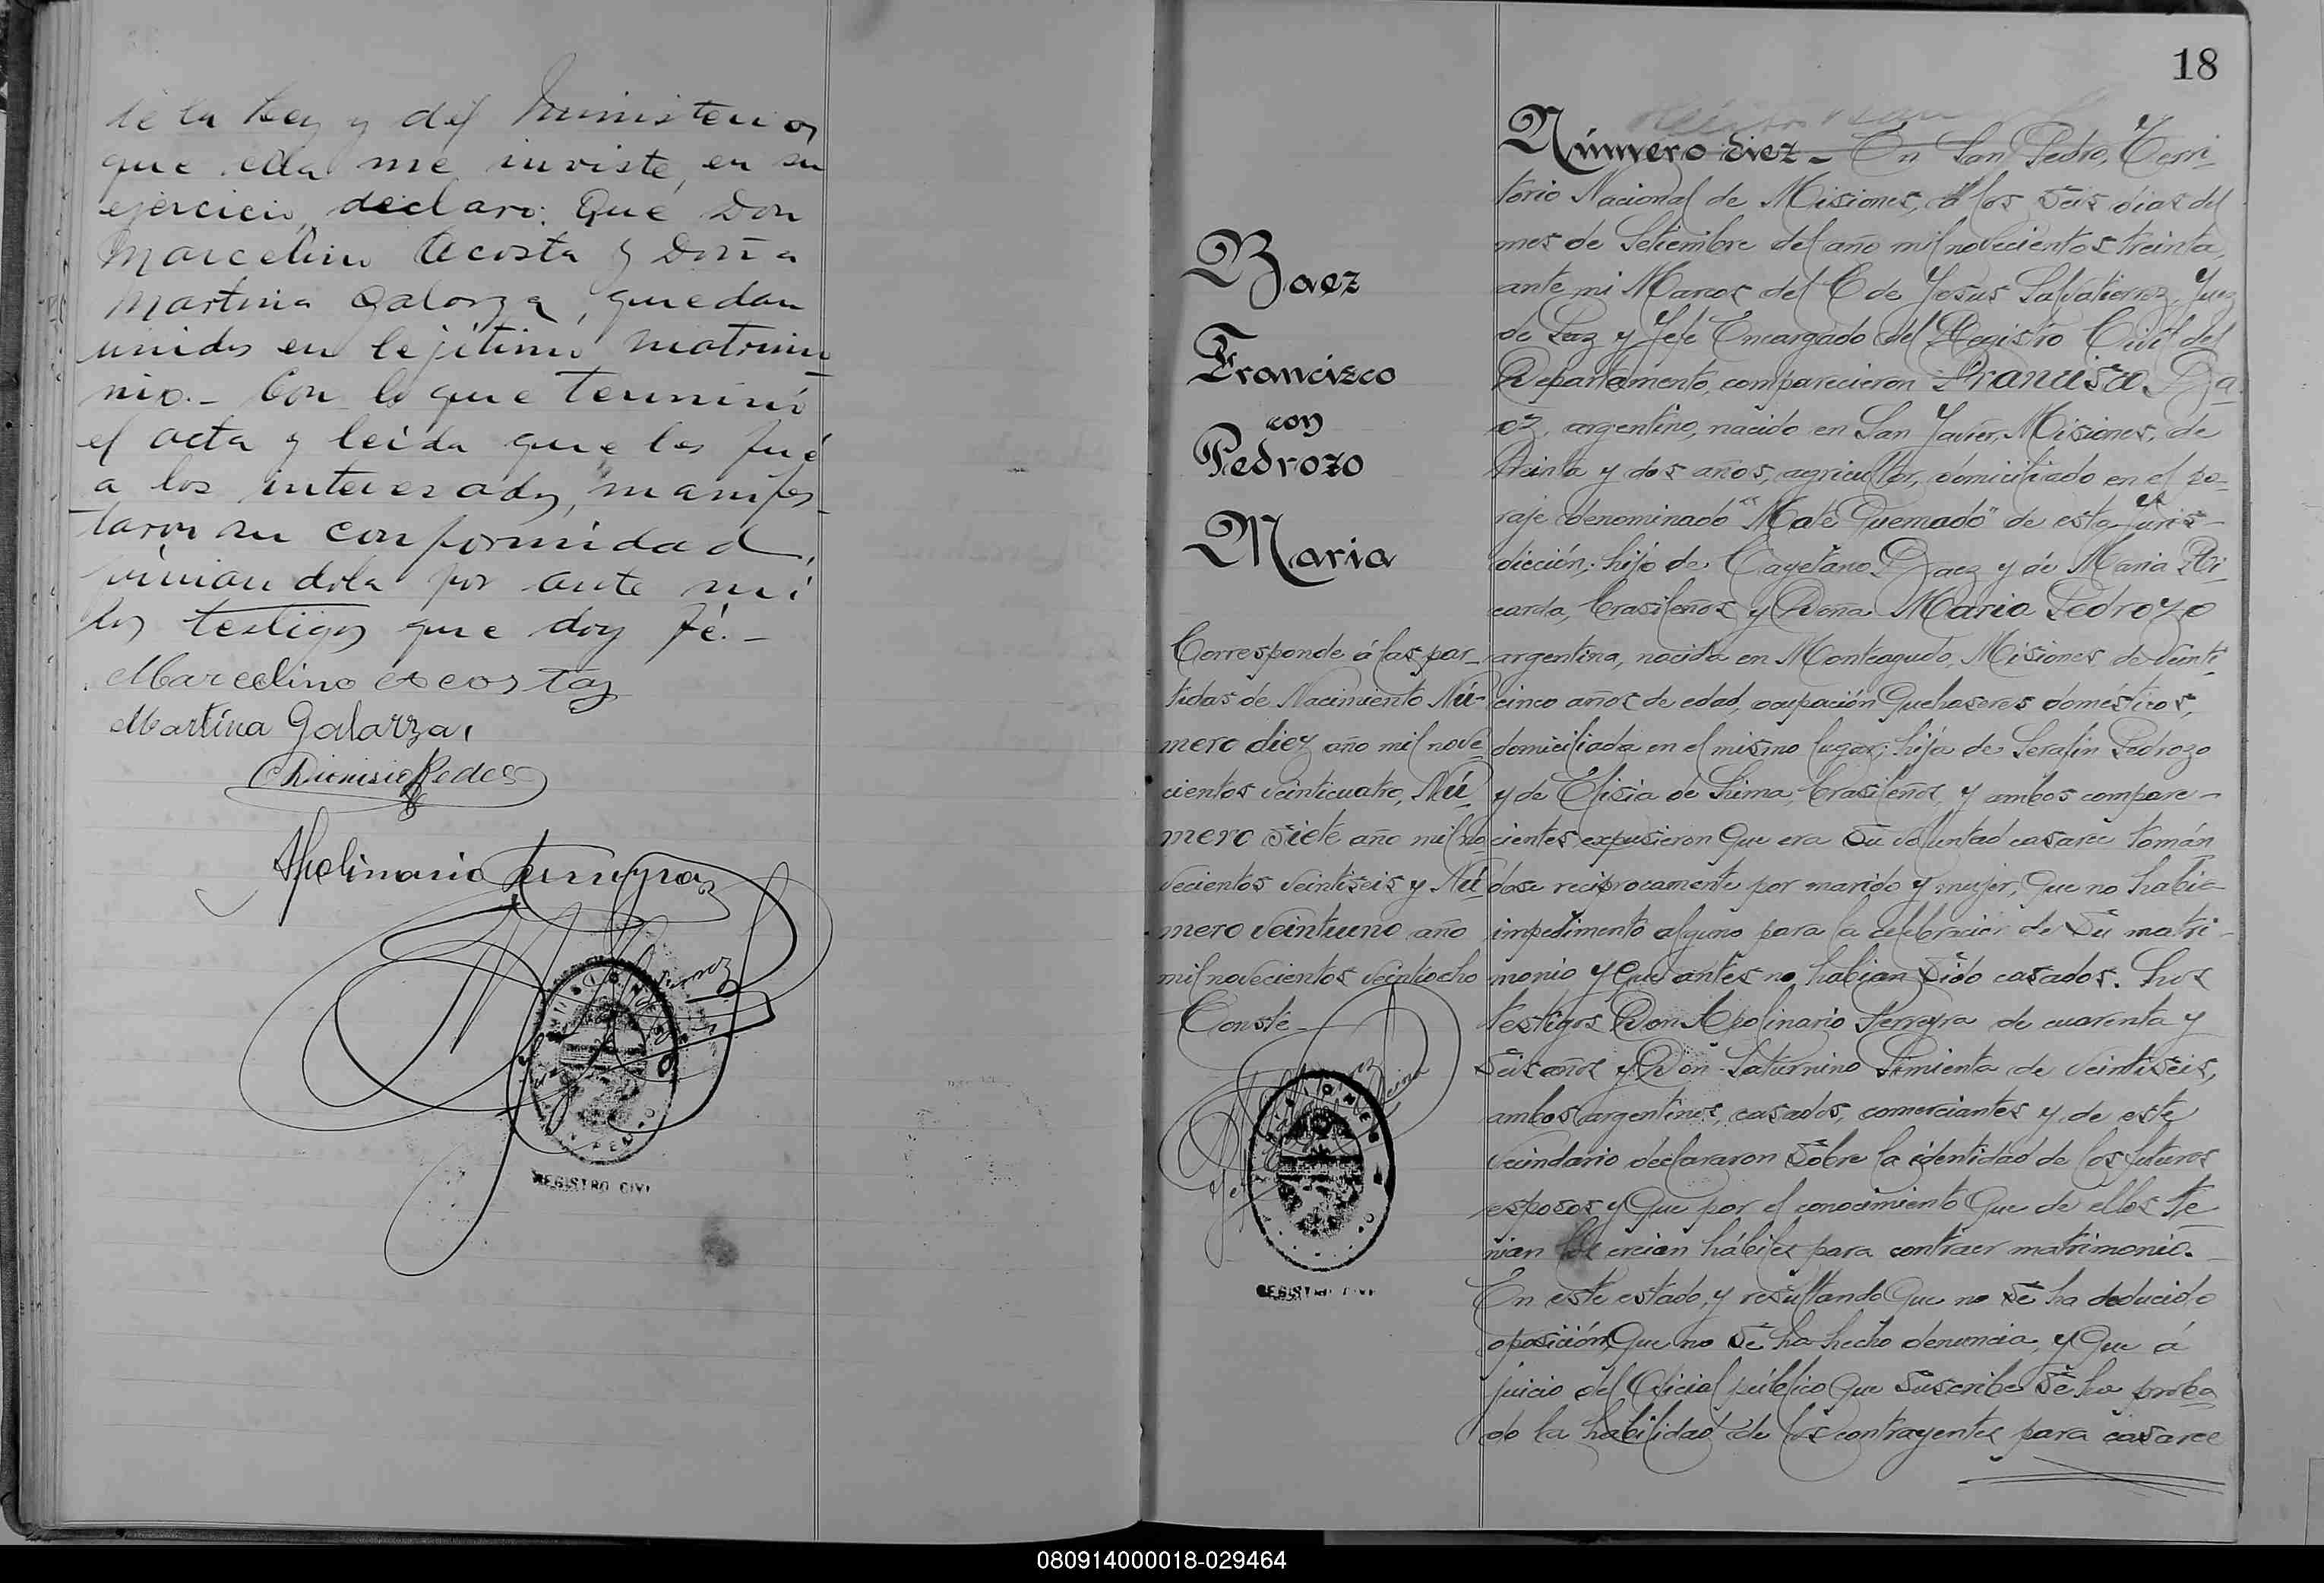 de la Ley y del ministerio
que ella me inviste, en su
ejercicio, declaro: Que Don
Marcelino Acosta y Doña
Martina Galarza, quedan
unidos en lejítimo matrimo
nio.- Con lo que terminó
el acta y leida que les fué
a los interesados, manifes-
taron su conformidad,
por ante mí
los testigos que doy fé.-
Marcelino Acosta
Martina Galarza
Dionisio
Apolinario Ferreyra
REGISTRO CIVI
18
Número diez- En San Pedro, Terri-
torio Nacional de Misiones, á los seis dias del
mes de Setiembre del año mil novecientos treinta,
ante mi Marcos del C de Jesus Salvatierrez, Juez
de Paz y Jefe Encargado del Registro Civil del
Departamento, comparecieron Francisco Ba-
ez, argentino, nacido en San Javier, Misiones, de
treinta y dos años, agricultor, domiciliado en el pa-
raje denominado "Mate Quemado" de esta juris-
dicción; hijo de Cayetano Baez y de Maria Ri-
carda, brasileños y Doña Maria Pedrozo
argentina, nacida en Monteagudo, Misiones, de veinti
cinco años de edad, ocupación Quehaseres domésticos,
domiciliada en el mismo lugar; hija de Serafin Pedrozo
y de Elisia de Lima, brasileños, y ambos compare-
cientes expusieron Que era su voluntad casarce tomán
dose reciprocamente por marido y mujer, Que no habia
impedimento alguno para la celebracion de su matri-
monio y Que antes no habian sido casados. Los
testigos Don Apolinario Ferreyra de cuarenta y
seis años y Don Saturnino Pimienta de veintiseis,
ambos argentinos, casados, comerciantes y de este
vecindario declararon sobre la identidad de los futuros
esposos y Que por el conocimiento Que de ellos te-
nian los creian hábiles para contraer matrimonio.
En este estado, y resultando Que no se ha deducido
oposición, Que no se ha hecho denuncia, y Que á
juicio del Oficial público Que suscribe se ha proba
do la habilidad de los contrayentes para casarce
Baez
Francizco
con
Pedrozo
Maria
Corresponde á las par-
tidas de Nacimiento Nú-
mero diez año mil nove
cientos veinticuatro, Nú
mero siete año mil no
vecientos veintiseis y Nú
mero veintiuno año
mil novecientos veintiocho
Conste-
REGISTRO CIVI
080914000018-029464